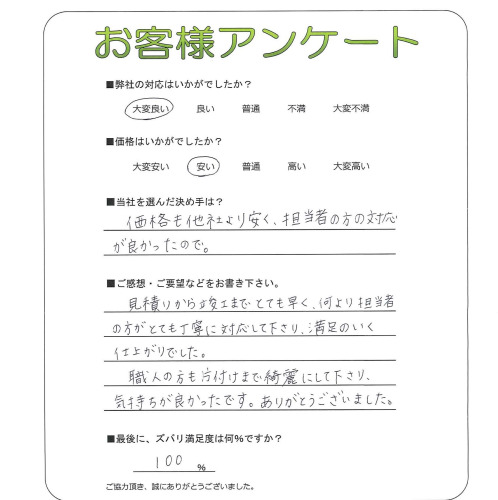 お客様アンケート
■弊社の対応はいかがでしたか？
大変良い 良い 普通 不満 大変不満
■価格はいかがでしたか？
大変安い 安い 普通 高い 大変高い
■当社を選んだ決め手は？
価格も他社より安く、担当者の方の対応
が良かったので。
■ご感想・ご要望などをお書き下さい。
見積りから竣工までとても早く、何より担当者
の方がとても丁寧に対応して下さり、満足のいく
仕上がりでした。
職人の方も片付けまで綺麗にして下さり、
気持ちが良かったです。ありがとうございました。
■最後に、ズバリ満足度は何%ですか？
100 %
ご協力頂き、誠にありがとうございました。